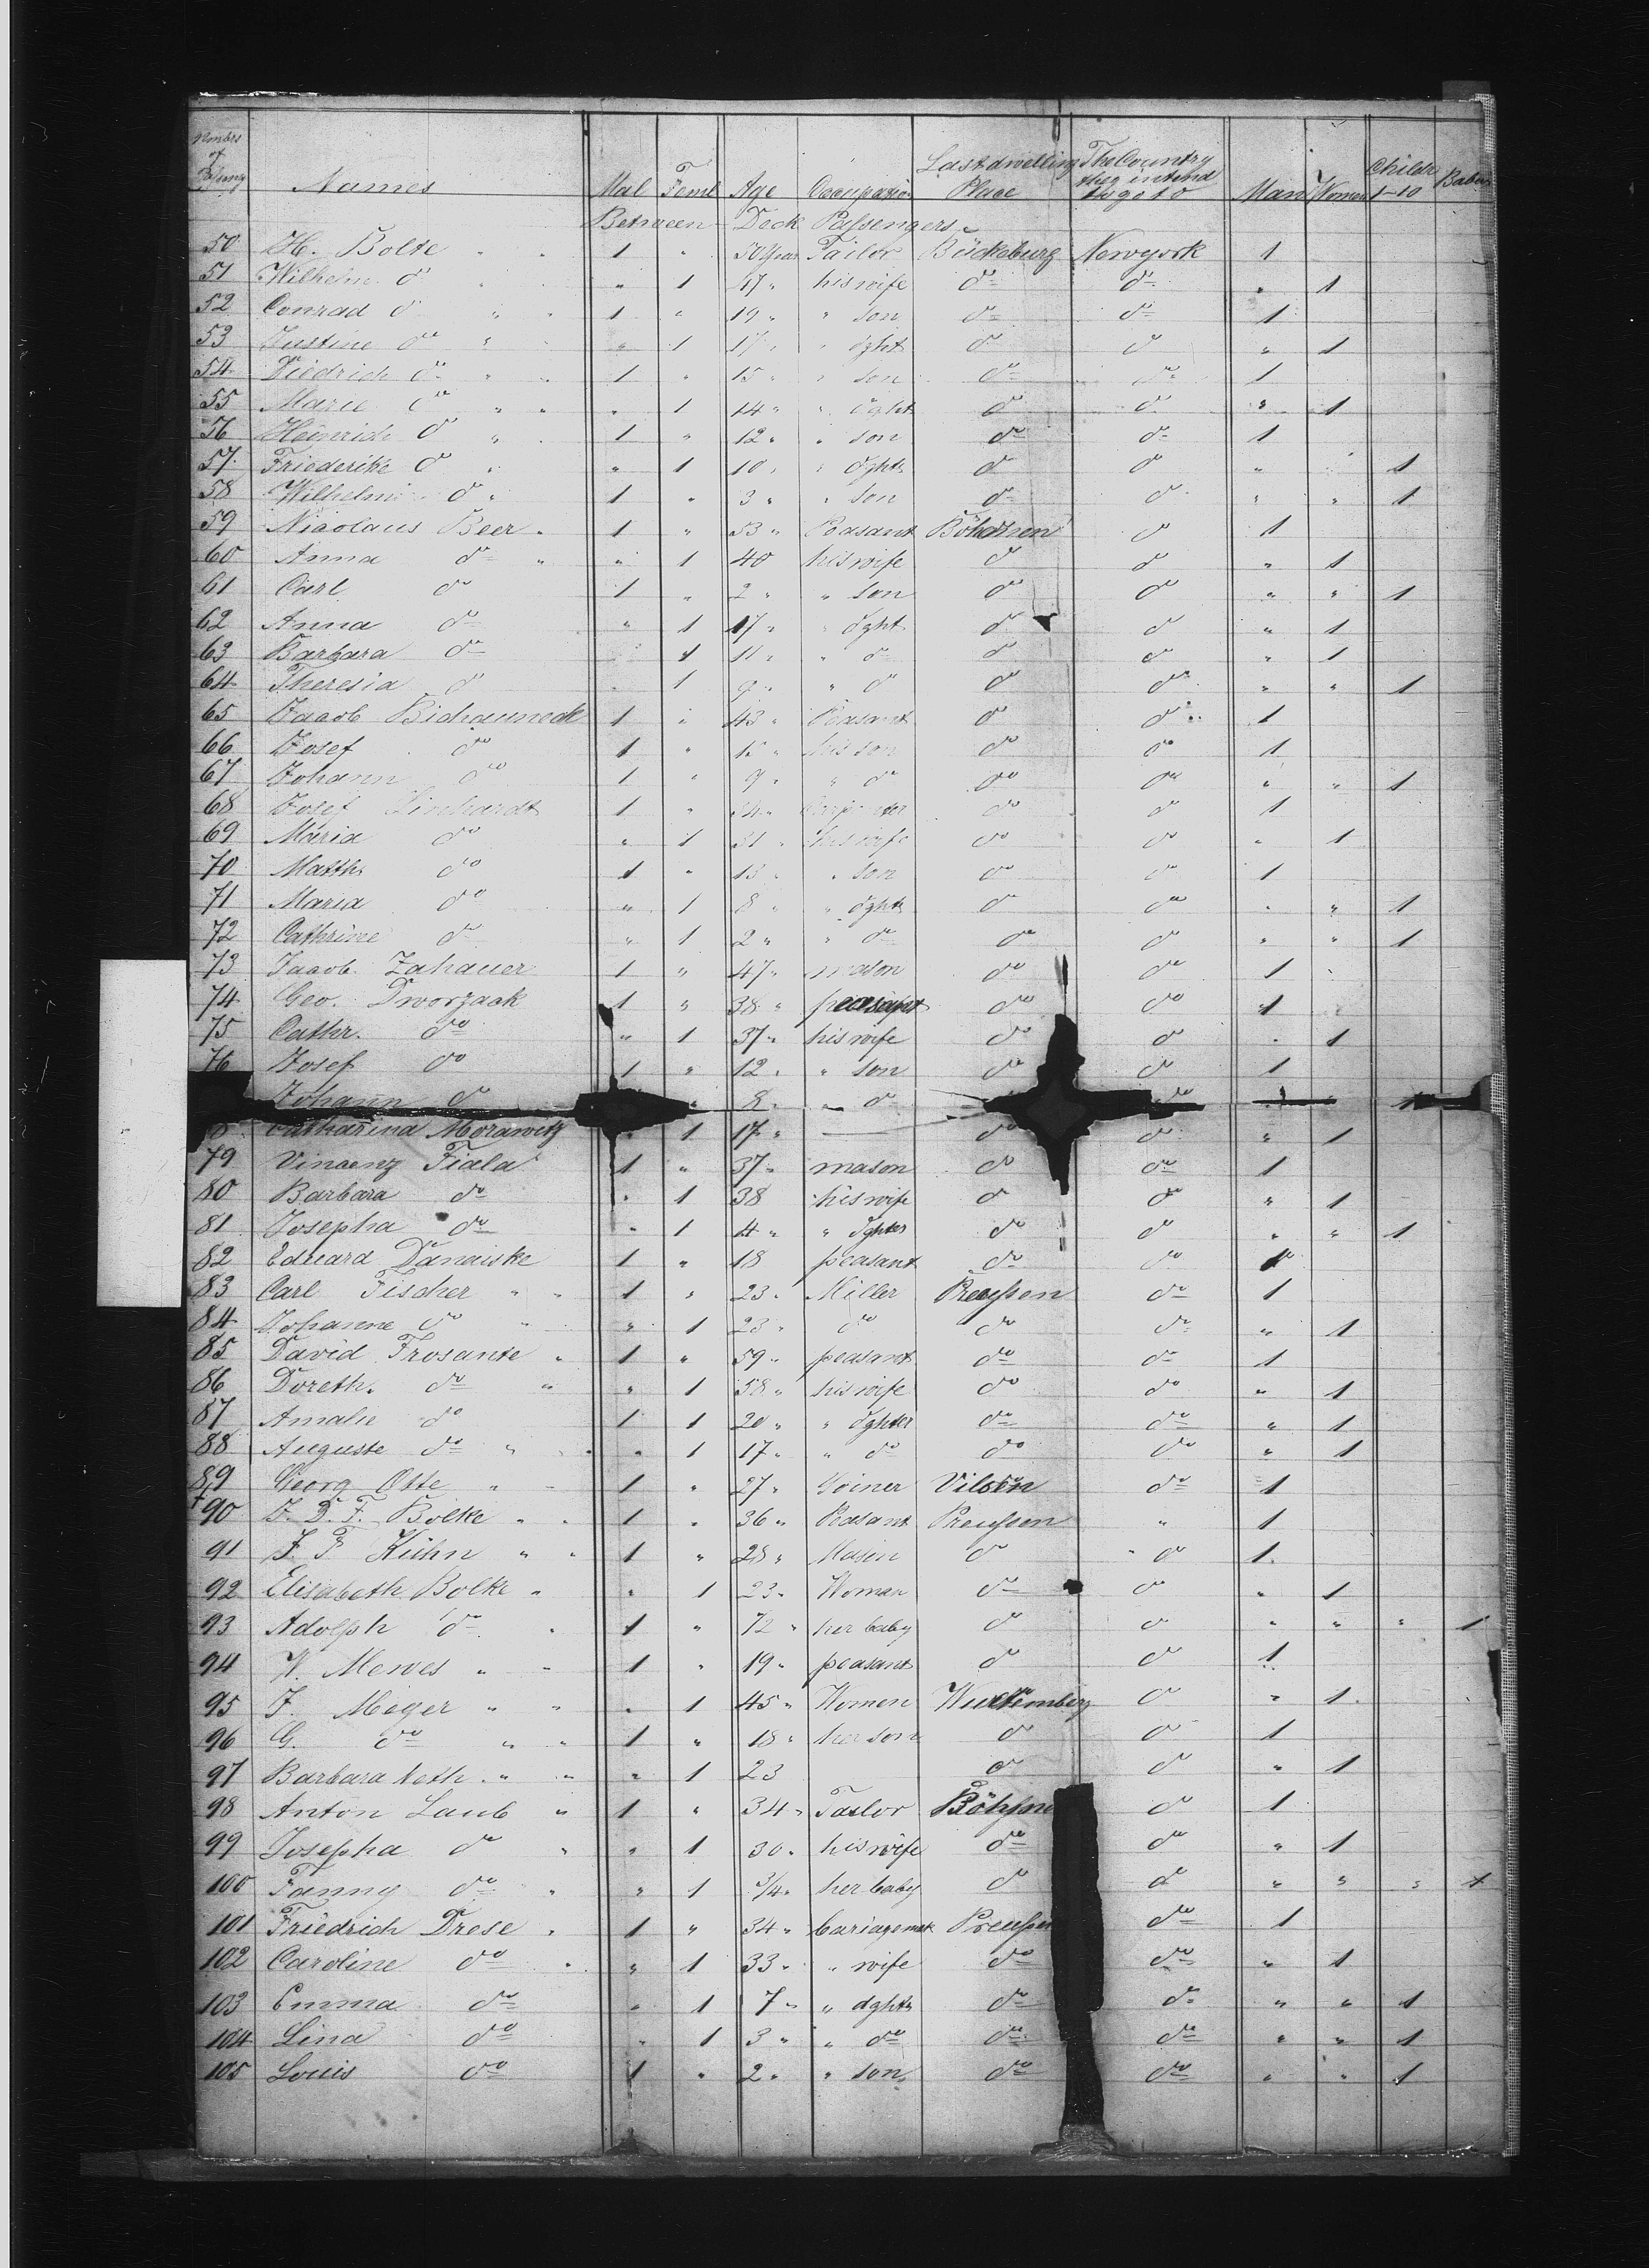 Numbrs of Passeng Names Mal Feml Age Occupation Last dwelling Place The Country they intend to go to Man Women Childr 1-10 Babies
Between - Deck Passengers
50 H. Bolte " " 1 " 50 Year Tailor Bückeburg Newyork 1
51 Wilhelm. do " 1 47 " his wife do do " 1
52 Conrad do " " 1 " 19 " " son do do 1
53 Justine do " " 1 17 " " dght do do " 1
54 Diedrich do " " 1 " 15 " " son do do 1
55 Marie do " " " 1 14 " " dght do do " 1
56 Heinrich do " 1 " 12 " " son do do 1
57 Friederike do " " 1 10 " " dght do do " 1
58 Wilhelm do " 1 " 3 " " son do do " " 1
59 Nicolaus Beer " 1 " 53 " Peasant Böhmen do 1
60 Anna do " " 1 40 his wife do do " 1
61 Carl do 1 " 2 " " son do do " " 1
62 Anna do " 1 17 " " dght do do " 1
63 Barbara do 1 11 " " do do do " 1
64 Theresia do " 1 9 " " do do do " " 1
65 Jacob Bichauneck 1 " 43 " Peasant do do 1
66 Josef do 1 " 15 " his son do do 1
67 Johann do 1 " 9 " " do do do " " 1
68 Josef Linhardt 1 " 34 " Carpenter do do 1
69 Maria do " 1 31 " his wife do do " 1
70 Matth. do 1 " 13 " " son do do 1
71 Maria do " 1 8 " " dght do do " " 1
72 Cathrine do " 1 2 " " do do do " " 1
73 Jacob Zahauer 1 " 47 " mason do do 1
74 Geo. Dworzack 1 " 38 " peasant do do 1
75 Cathr. do " 1 37 " his wife do do " 1
76 Josef do 1 " 12 " " son do do 1
Johann do 8 " " do do 1
8 Catharina Morawitz " 1 17 " — do do " 1
79 Vincenz Fiala 1 " 37 " mason do do 1
80 Barbara do " 1 38 his wife do do " 1
81 Josepha do " 1 4 " " dghter do do " " 1
82 Eduard Danaiske 1 " 18 peasant do do 1
83 Carl Fischer " " 1 " 23 " Miller Preussen do 1
84 Johanne do " " 1 23 " do do do " 1
85 David Frosante " 1 " 59 " peasant do do 1
86 Doreth. do " " 1 58 " his wife do do " 1
87 Amalie do 1 1 20 " " dghter do do " 1
88 Auguste do " " 1 17 " " do do do " 1
89 Georg Otte " " 1 " 27 " Joiner Vilsen do 1
90 J. D. F. Bolke " " 1 " 36 " Peasant Preussen " 1
91 J. F Kühn " " 1 " 28 " Masin do " do 1
92 Elisabeth Bolke " " 1 23 " Woman do do " 1
93 Adolph do " 1 " 72 " her baby do do " " " 1
94 W. Mewes " " 1 " 19 " peasant do do 1
95 J. Meger " " " 1 45 " Women Wurtemberg do " 1
96 G. do " " 1 " 18 " her son do do 1
97 Barbara Neth. " " " 1 23 do do " 1
98 Anton Laub " 1 " 34 " Tailor Böhme do 1
99 Josepha do " " 1 30 " his wife do do " 1
100 Fanny do " " 1 3/4 " her baby do do " " " 1
101 Friedrich Drese " 1 " 34 " Cariagemak Preussen do 1
102 Caroline do " " 1 33 " " wife do do " 1
103 Emma do " 1 7 " " dghtr do do " " 1
104 Lina do " 1 3 " " do do do " " 1
105 Louis do 1 " 2 " " son do do " " 1